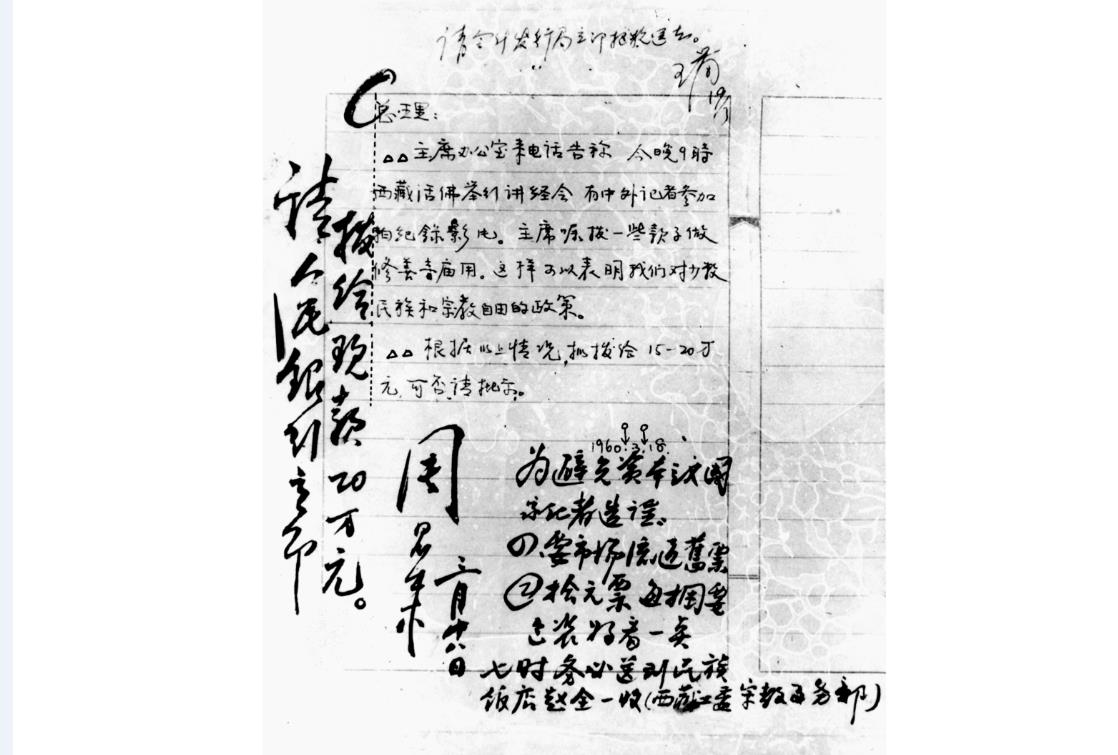 请会计发行局立即拨款送去。
总理：
△△主席办公室来电话告称 今晚9時
西藏活佛举行讲经会 有中外记者参加
拍纪錄影电。主席嘱拨一些款子做
修善寺庙用。这样可以表明我们对少数
民族和宗教自由的政策。
△△根据以上情况，拟拨给15-20万
元，可否请批示。
1960.3.18.
请人民銀行立即
拨给现款20万元。
周恩来
三月十八日
为避免资本主义国
家记者造谣。
①要市场流通舊票
②拾元票 每捆要
包装好看一点
七时务必送到民族
饭店赵全一收(西藏工委宗教事务部)